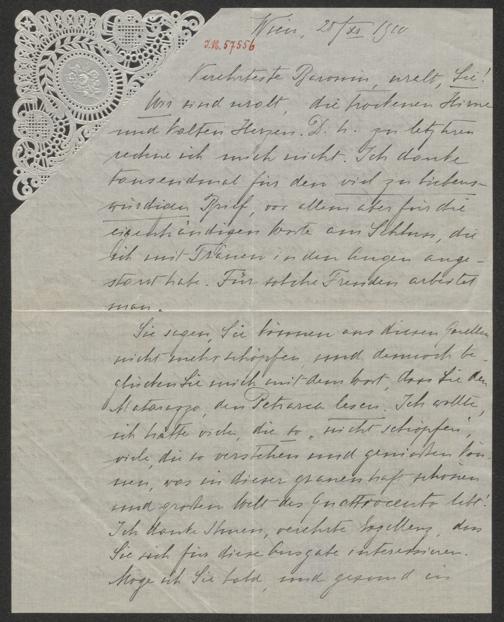 Wien, 20/XI 1910
I.N. 57556
Verehrteste Baronin, uralt, Sie!
Wir sind uralt, die trockenen Hirne
und kalten Herzen. D. h. zu letzteren
rechne ich mich nicht. Ich danke
tausendmal für den viel zu liebens-
würdigen Brief, vor allem aber für die
eigenhändigen Worte am Schluss, die
ich mit Tränen in den Augen ange-
starrt habe. Für solche Freuden arbeitet
man.
Sie sagen, Sie können aus diesen Quellen
nicht mehr schöpfen, und dennoch be-
glücken Sie mich mit dem Wort, dass Sie den
Matarazzo, den Petrarca lesen. Ich wollte,
ich hätte viele, die so „nicht schöpfen",
viele, die so verstehen und genießen kön-
nen, was in dieser grauenhaft schönen
und großen Welt des Quattrocento lebt!
Ich danke Ihnen, verehrte Exzellenz, dass
Sie sich für diese Ausgabe interessieren.
Möge ich Sie bald, und gesund in